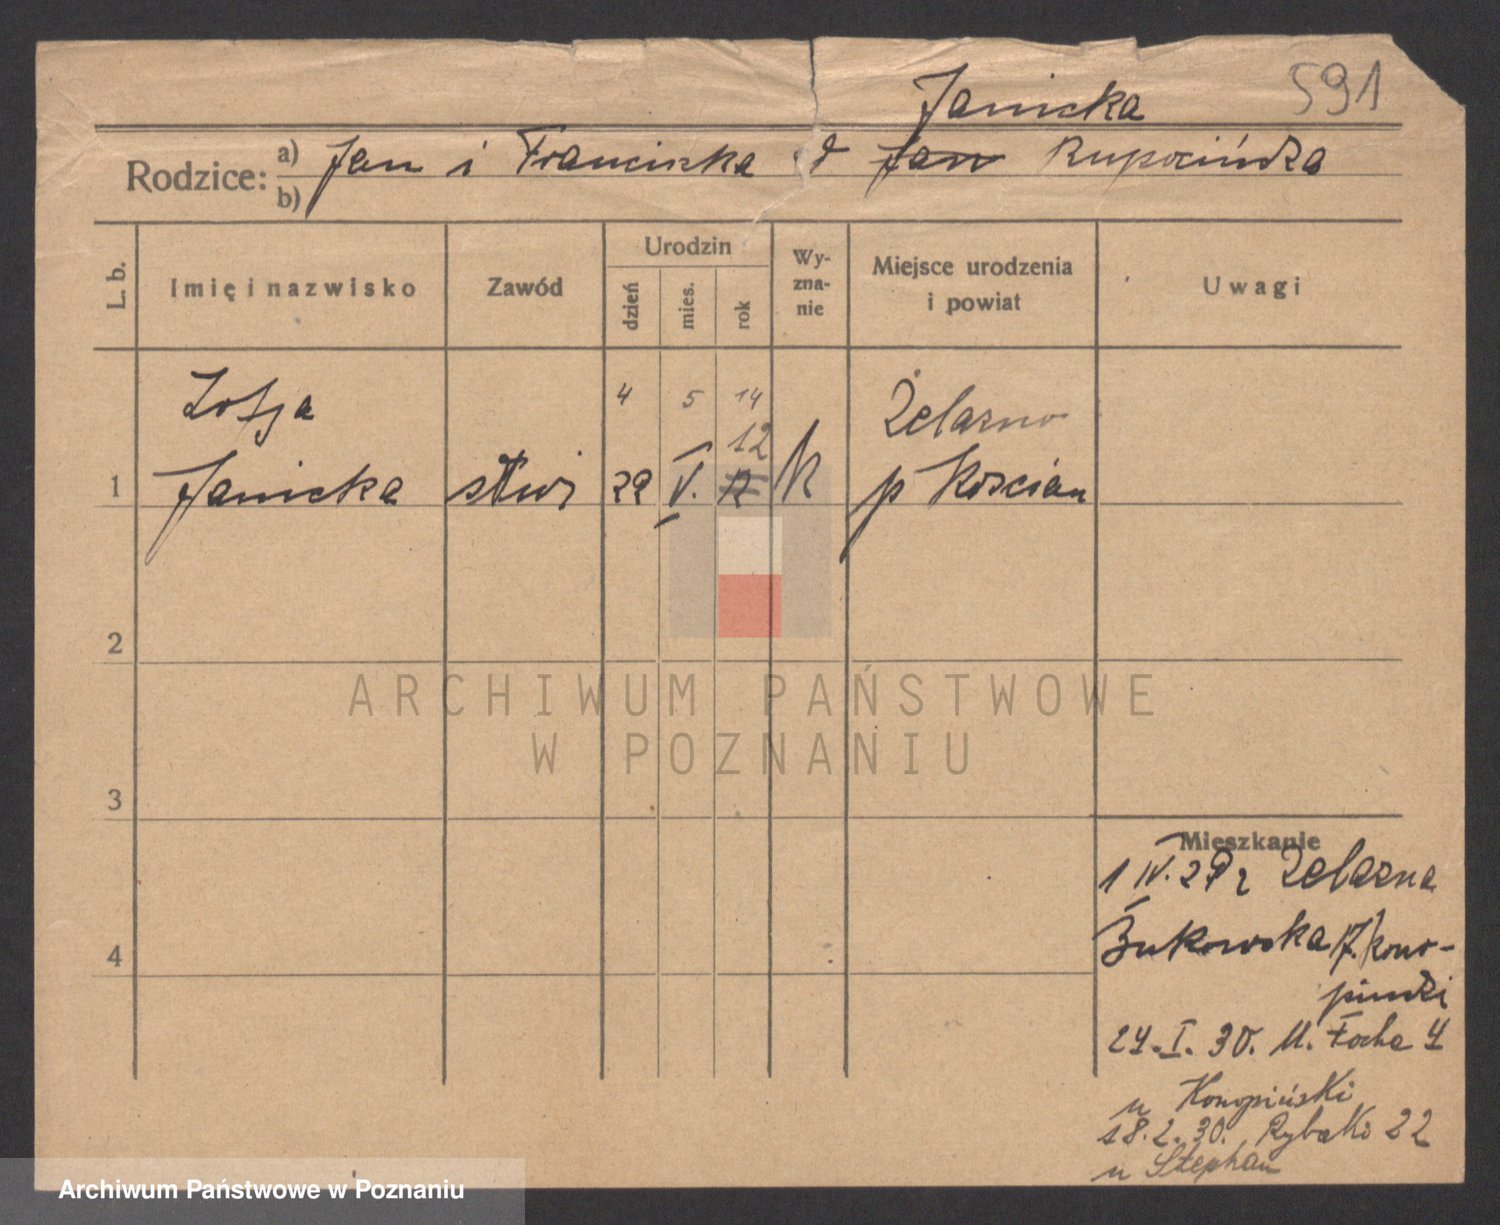 Janicka 591
Rodzice: a) Jan i Franciszka d Jan Rupocińska
b)
L. b.
Imię i nazwisko
Zawód
Urodzin
dzień
mies.
rok
Wy-
zna-
nie
Miejsce urodzenia
i powiat
Uwagi
Zofja 4 5 14 Żelazno
12
1 Janicka służ 22 V. K p Kościan
2
ARCHIWUM PAŃSTWOWE
W POZNANIU
3
Mieszkanie
1 IV. 29 z Żelazna
4 Bukowska 17/ Kono-
pinski
24. I. 30. M. Focha 4
u Konopiński
18. 2. 30. Rybaki 22
u Stephan
Archiwum Państwowe w Poznaniu